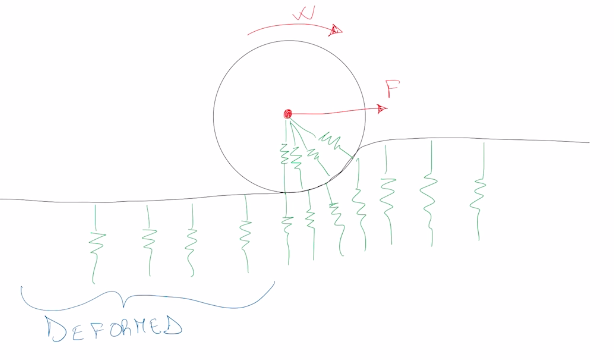 W
F
DEFORMED